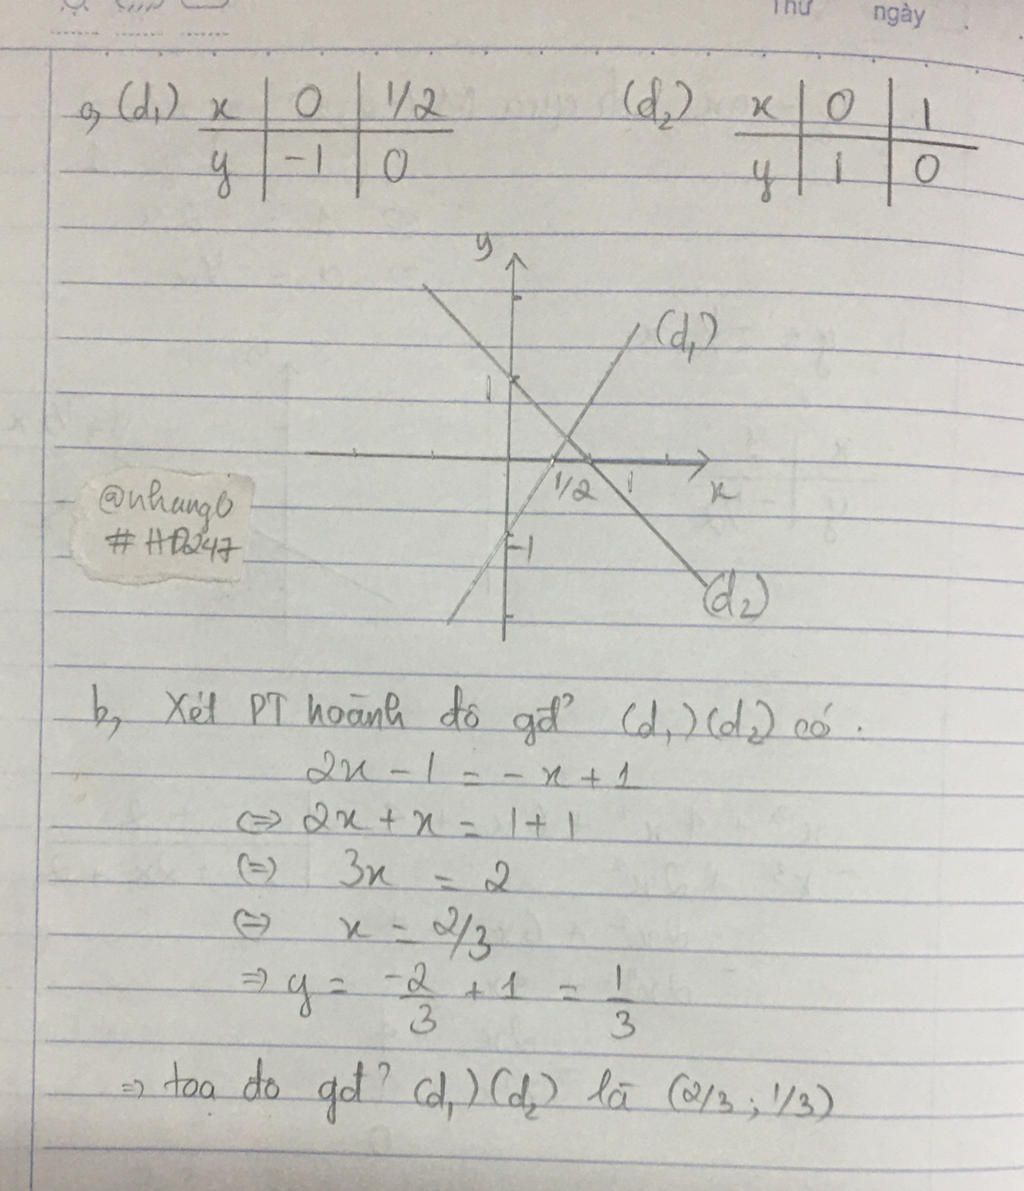 Thứ ngày
a, (d₁) x | 0 | 1/2 (d₂) x | 0 | 1
y | -1 | 0 y | 1 | 0
y
(d₁)
1
1/2 1 x
@nhung6
#HĐ247
-1
(d₂)
b, Xét PT hoành độ gđ² (d₁)(d₂) có.
2x - 1 = -x + 1
⇔ 2x + x = 1 + 1
⇔ 3x = 2
⇔ x = 2/3
⇒ y = -2/3 + 1 = 1/3
⇒ toạ độ gđ² (d₁)(d₂) là (2/3; 1/3)